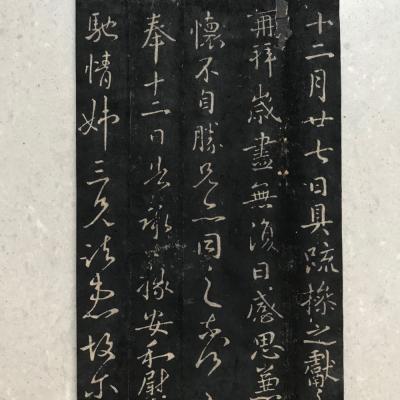 十二月廿七日具疏操之獻之
再拜歲盡無復日感思兼
懷不自勝兄亦同之
奉十二日告承嫂安和慰
馳情姊三兄諸患故尔